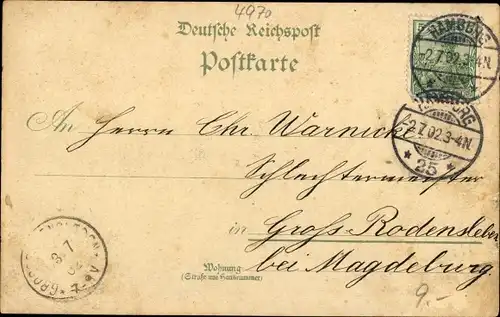 4970
Deutsche Reichspost
Postkarte
HAMBURG
2.7.02.3-4N.
HAMBURG
2.7.02.3-4N.
* 25 *
An Herrn Chr. Warnicke
Schlechtermeister
in Gross-Rodensleben
bei Magdeburg
Wohnung
(Straße und Hausnummer)
3 7
02
9.-